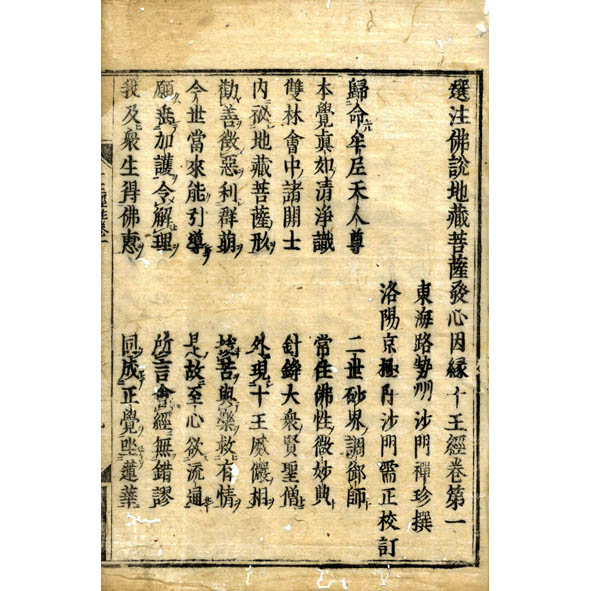 選注佛說地藏菩薩發心因緣十王經卷第一
東海路勢州沙門禪珍撰
洛陽京極府沙門需正校訂
歸命牟尼天人尊 二世砂界調御師
本覺真如清淨識 常住佛性微妙典
雙林會中諸開士 針鋒大衆賢聖僧
內祕地藏菩薩形 外現十王威儀相
勸善徵惡利群萌 拔苦與樂救有情
今世當來能引導 是故至心欲流通
願垂加護令解理 所言會經無錯謬
我及衆生得佛惠 同成正覺坐蓮華